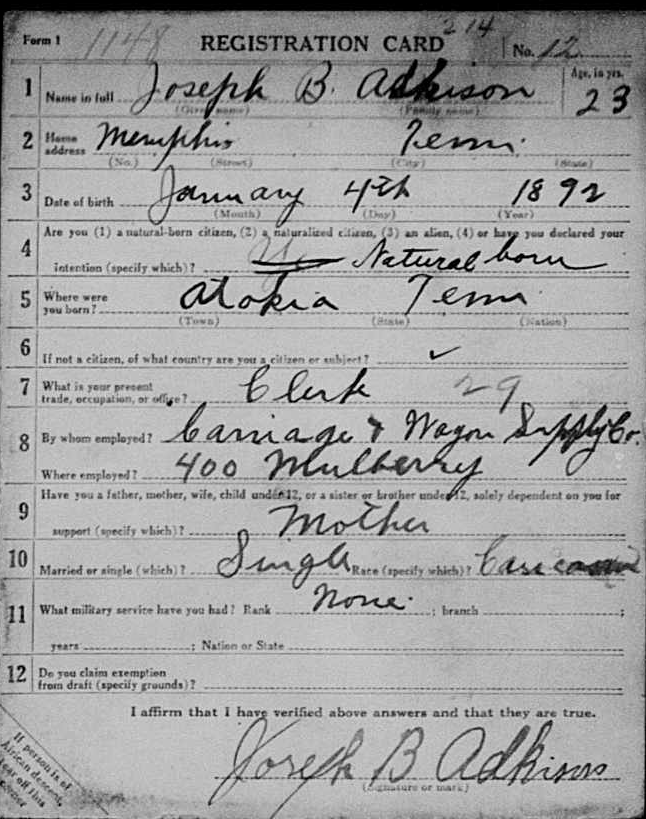 Form 1 1148 REGISTRATION CARD 214 No. 12
1 Name in full Joseph B. Adkison Age, in yrs. 23
(Given name) (Family name)
2 Home address Memphis Tenn.
(No.) (Street) (City) (State)
3 Date of birth January 4th 1892
(Month) (Day) (Year)
4 Are you (1) a natural-born citizen, (2) a naturalized citizen, (3) an alien, (4) or have you declared your
intention (specify which)? Natural born
5 Where were you born? Atokia Tenn
(Town) (State) (Nation)
6 If not a citizen, of what country are you a citizen or subject? ✓
7 What is your present trade, occupation, or office? Clerk 29
8 By whom employed? Carriage & Wagon Supply Co.
Where employed? 400 Mulberry
9 Have you a father, mother, wife, child under 12, or a sister or brother under 12, solely dependent on you for
support (specify which)? Mother
10 Married or single (which)? Single Race (specify which)? Caucasian
11 What military service have you had? Rank None. ; branch ;
years ; Nation or State
12 Do you claim exemption
from draft (specify grounds)?
I affirm that I have verified above answers and that they are true.
Joseph B Adkison
(Signature or mark)
If person is of
African descent,
tear off this
corner